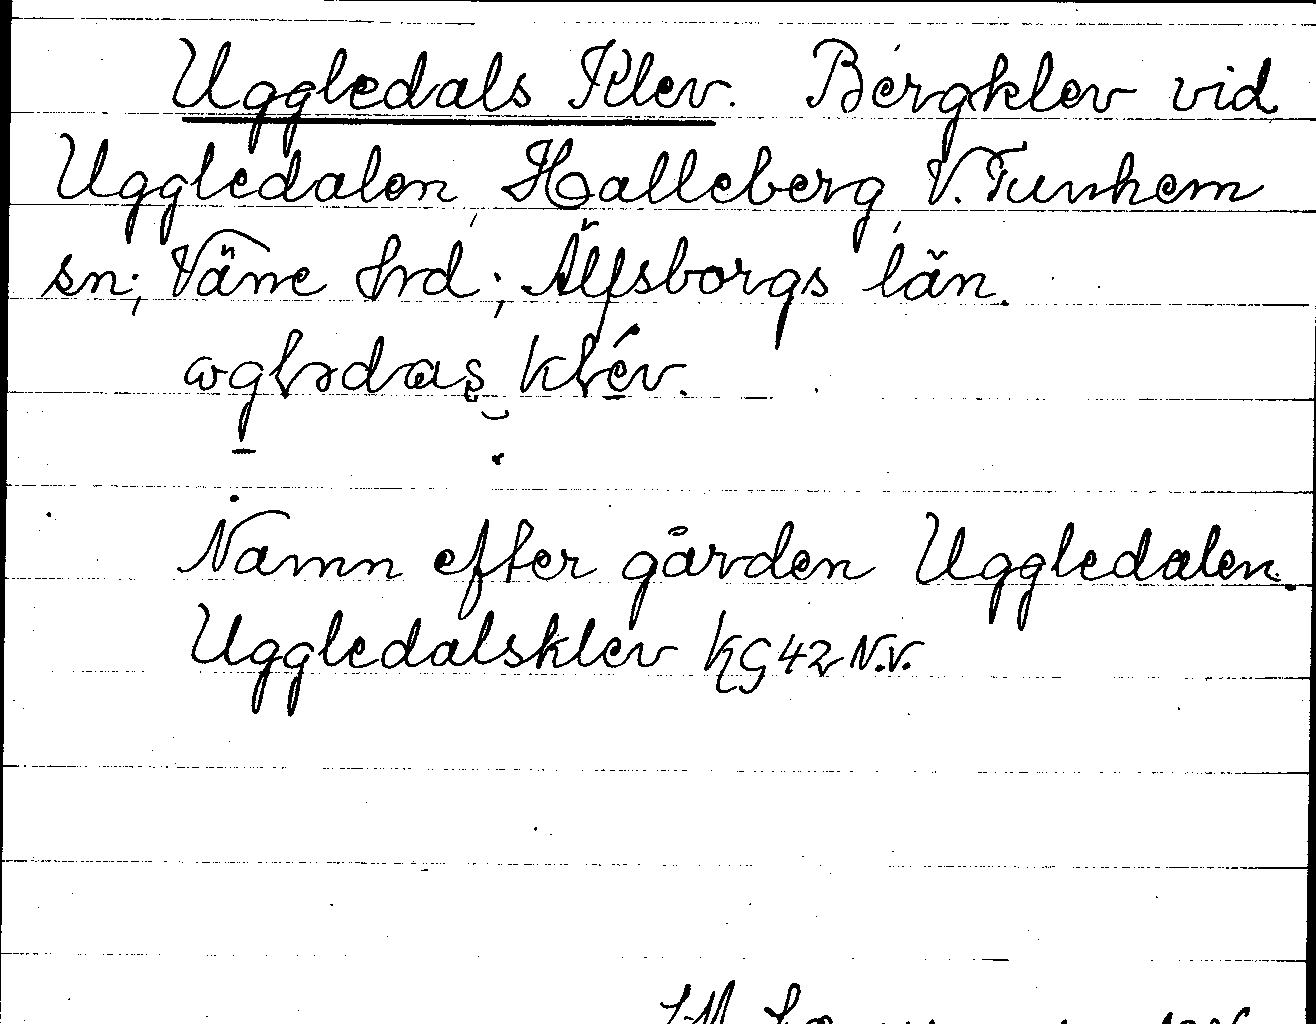 Uggledals Klev. Bergklev vid
Uggledalen, Halleberg, V. Tunhem
sn; Väne hrd; Älfsborgs län.
Namn efter gården Uggledalen.
Uggledalsklev KG 42 N.V.